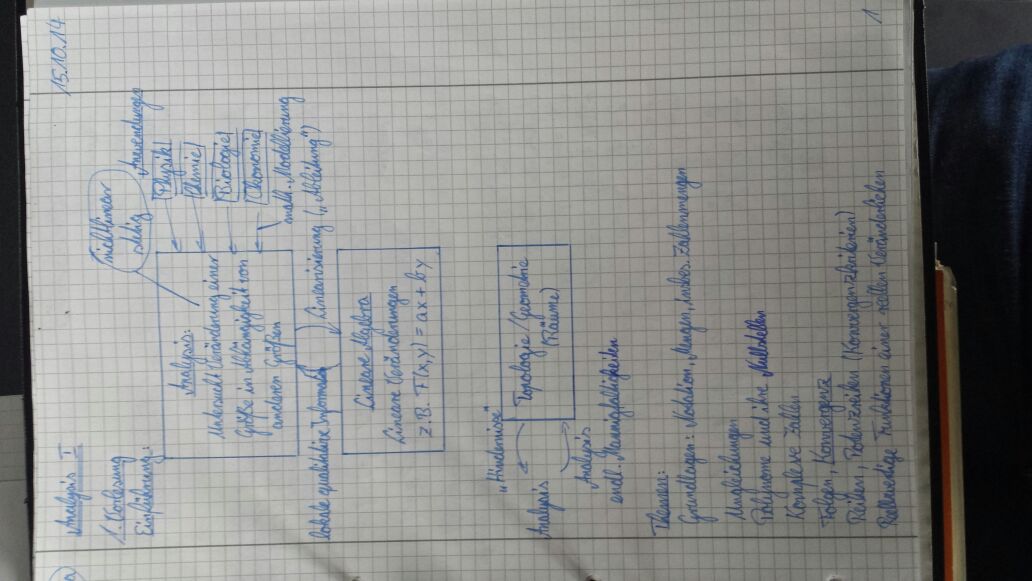 15.10.14
Analysis I
1. Vorlesung
Einführung:
nichtlinear
stetig
Analysis:
Untersucht Veränderung einer
Größe in Abhängigkeit von
anderen Größen
Anwendungen
Physik
Chemie
Biologie
Ökonomie
math. Modellierung
lokale qualitative Information
Linearisierung („Ableitung“)
Lineare Algebra
Lineare Veränderungen
z.B. F(x,y) = ax + by
„Hindernisse“
Analysis
Topologie/Geometrie
(Räume)
Analysis
endl. Mannigfaltigkeiten
Themen:
Grundlagen: Notation, Mengen, Zahlenmengen
Ungleichungen
Polynome und ihre Nullstellen
Komplexe Zahlen
Folgen, Konvergenz
Reihen, Potenzreihen (Konvergenzkriterien)
Reellwertige Funktionen einer reellen Veränderlichen
1